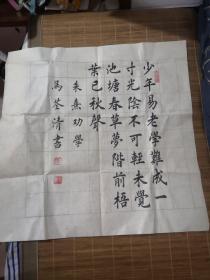 少年易老學難成一
寸光陰不可輕未覺
池塘春草夢階前梧
葉已秋聲
朱熹功學
馬荃清書